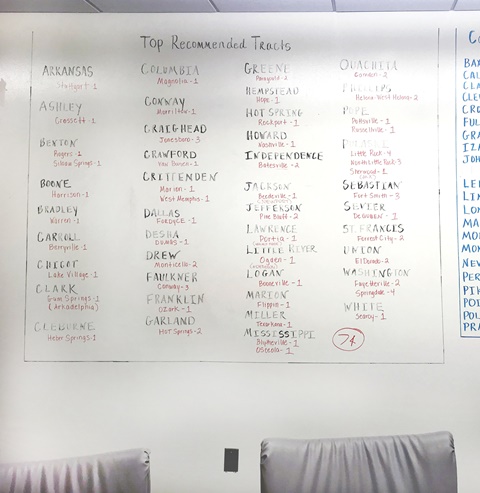 Top Recommended Tracts
ARKANSAS
Stuttgart-1
ASHLEY
Crossett-1
BENTON
Rogers-1
Siloam Springs-1
BOONE
Harrison-1
BRADLEY
Warren-1
CARROLL
Berryville-1
CHICOT
Lake Village-1
CLARK
Gum Springs-1
(Arkadelphia)
CLEBURNE
Heber Springs-1
COLUMBIA
Magnolia-1
CONWAY
Morrilton-1
CRAIGHEAD
Jonesboro-3
CRAWFORD
Van Buren-1
CRITTENDEN
Marion-1
West Memphis-1
DALLAS
Fordyce-1
DESHA
Dumas-1
DREW
Monticello-2
FAULKNER
Conway-3
FRANKLIN
Ozark-1
GARLAND
Hot Springs-2
GREENE
Paragould-2
HEMPSTEAD
Hope-1
HOT SPRING
Rockport-1
HOWARD
Nashville-1
INDEPENDENCE
Batesville-2
JACKSON
JEFFERSON
Pine Bluff-2
LAWRENCE
Portia-1
LITTLE RIVER
Ogden-1
LOGAN
Booneville-1
MARION
Flippin-1
MILLER
Texarkana-1
MISSISSIPPI
Blytheville-1
Osceola-1
OUACHITA
Camden-2
PHILLIPS
Helena-West Helena-2
POPE
Pottsville-1
Russellville-1
Little Rock-4
North Little Rock-3
Sherwood-1
SEBASTIAN
Fort Smith-3
SEVIER
DeQueen-1
ST. FRANCIS
Forrest City-2
UNION
El Dorado-2
WASHINGTON
Fayetteville-2
Springdale-4
WHITE
Searcy-1
74